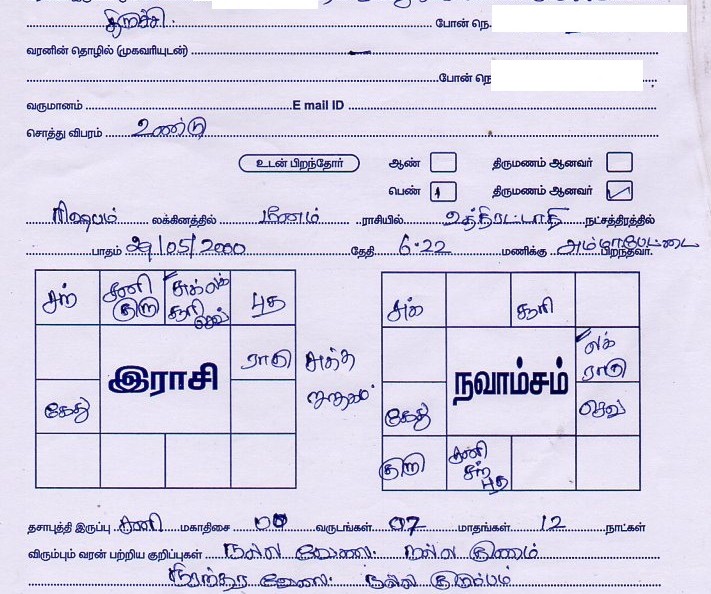 திருச்சி. போன் நெ.
வரனின் தொழில் (முகவரியுடன்) —
போன் நெ
வருமானம் E mail ID
சொத்து விபரம் உண்டு
உடன் பிறந்தோர் ஆண் திருமணம் ஆனவர்
பெண் 1 திருமணம் ஆனவர் ✓
ரிஷபம் லக்கினத்தில் மீனம் ராசியில் உத்திரட்டாதி நட்சத்திரத்தில்
பாதம் 29/05/2000 தேதி 6.22 மணிக்கு அம்மாபேட்டை பிறந்தவர்.
சந் சனி குரு சுக் லக் சூரி செவ் புத
ராகு
கேது
இராசி
சுத்த ஜாதகம்
சுக் சூரி
லக் ராகு
கேது செவ்
குரு சனி சந் புத
நவாம்சம்
தசாபுத்தி இருப்பு சனி மகாதிசை 00 வருடங்கள் 07 மாதங்கள் 12 நாட்கள்
விரும்பும் வரன் பற்றிய குறிப்புகள் நல்ல வேலை. நல்ல குணம்
நிரந்தர வேலை. நல்ல குடும்பம்